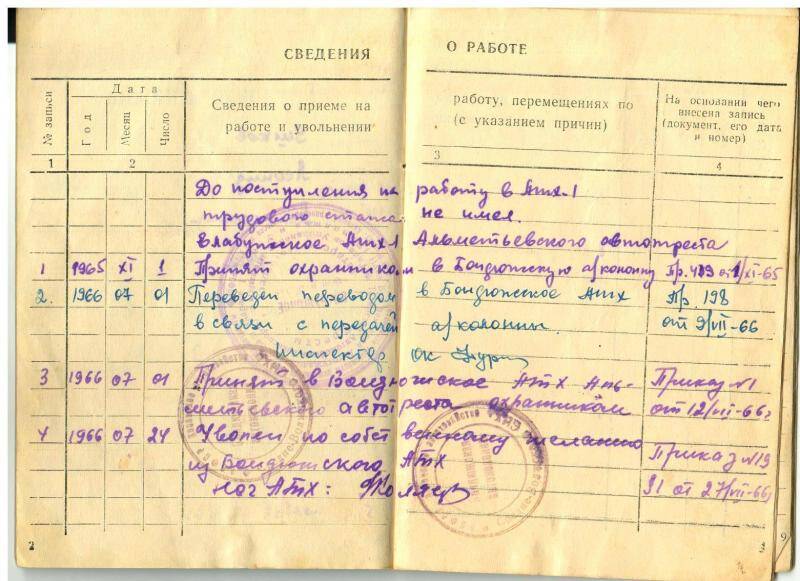 СВЕДЕНИЯ О РАБОТЕ
№ записи
Дата
Год
Месяц
Число
Сведения о приеме на работу, перемещениях по
работе и увольнении (с указанием причин)
На основании чего
внесена запись
(документ, его дата
и номер)
1 2 3 4
До поступления на работу в Атх-1
трудового стажа не имел.
Елабужское Атх-1 Альметьевского автотреста
1 1965 XI 1 Принят охранником в Бондюжскую а/колонну Пр. от XI-65
2. 1966 07 01 Переведен переводом в Бондюжское Атх Пр. 198
в связи с передачей а/колонны. от 9/VII-66
Инспектор ок
3 1966 07 01 Принят в Бондюжское АТХ Аль- Приказ №1
метьевского автотреста охранником от 12/VII-66г
4 1966 07 24 Уволен по собственному желанию
из Бондюжского АТХ Приказ №19
Нач АТХ: от 27/VII-66
2